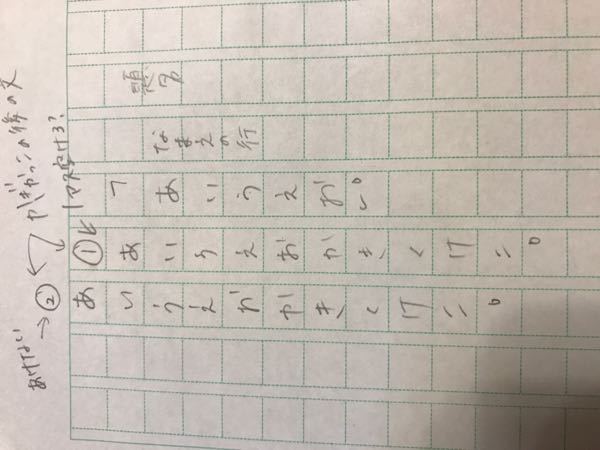 かぎかっこの後の文
1マスあける?
あけない
→②
題名
なまえの行
「あいうえお。」
①と あいうえおかきくけこ。
あいうえおかきくけこ。